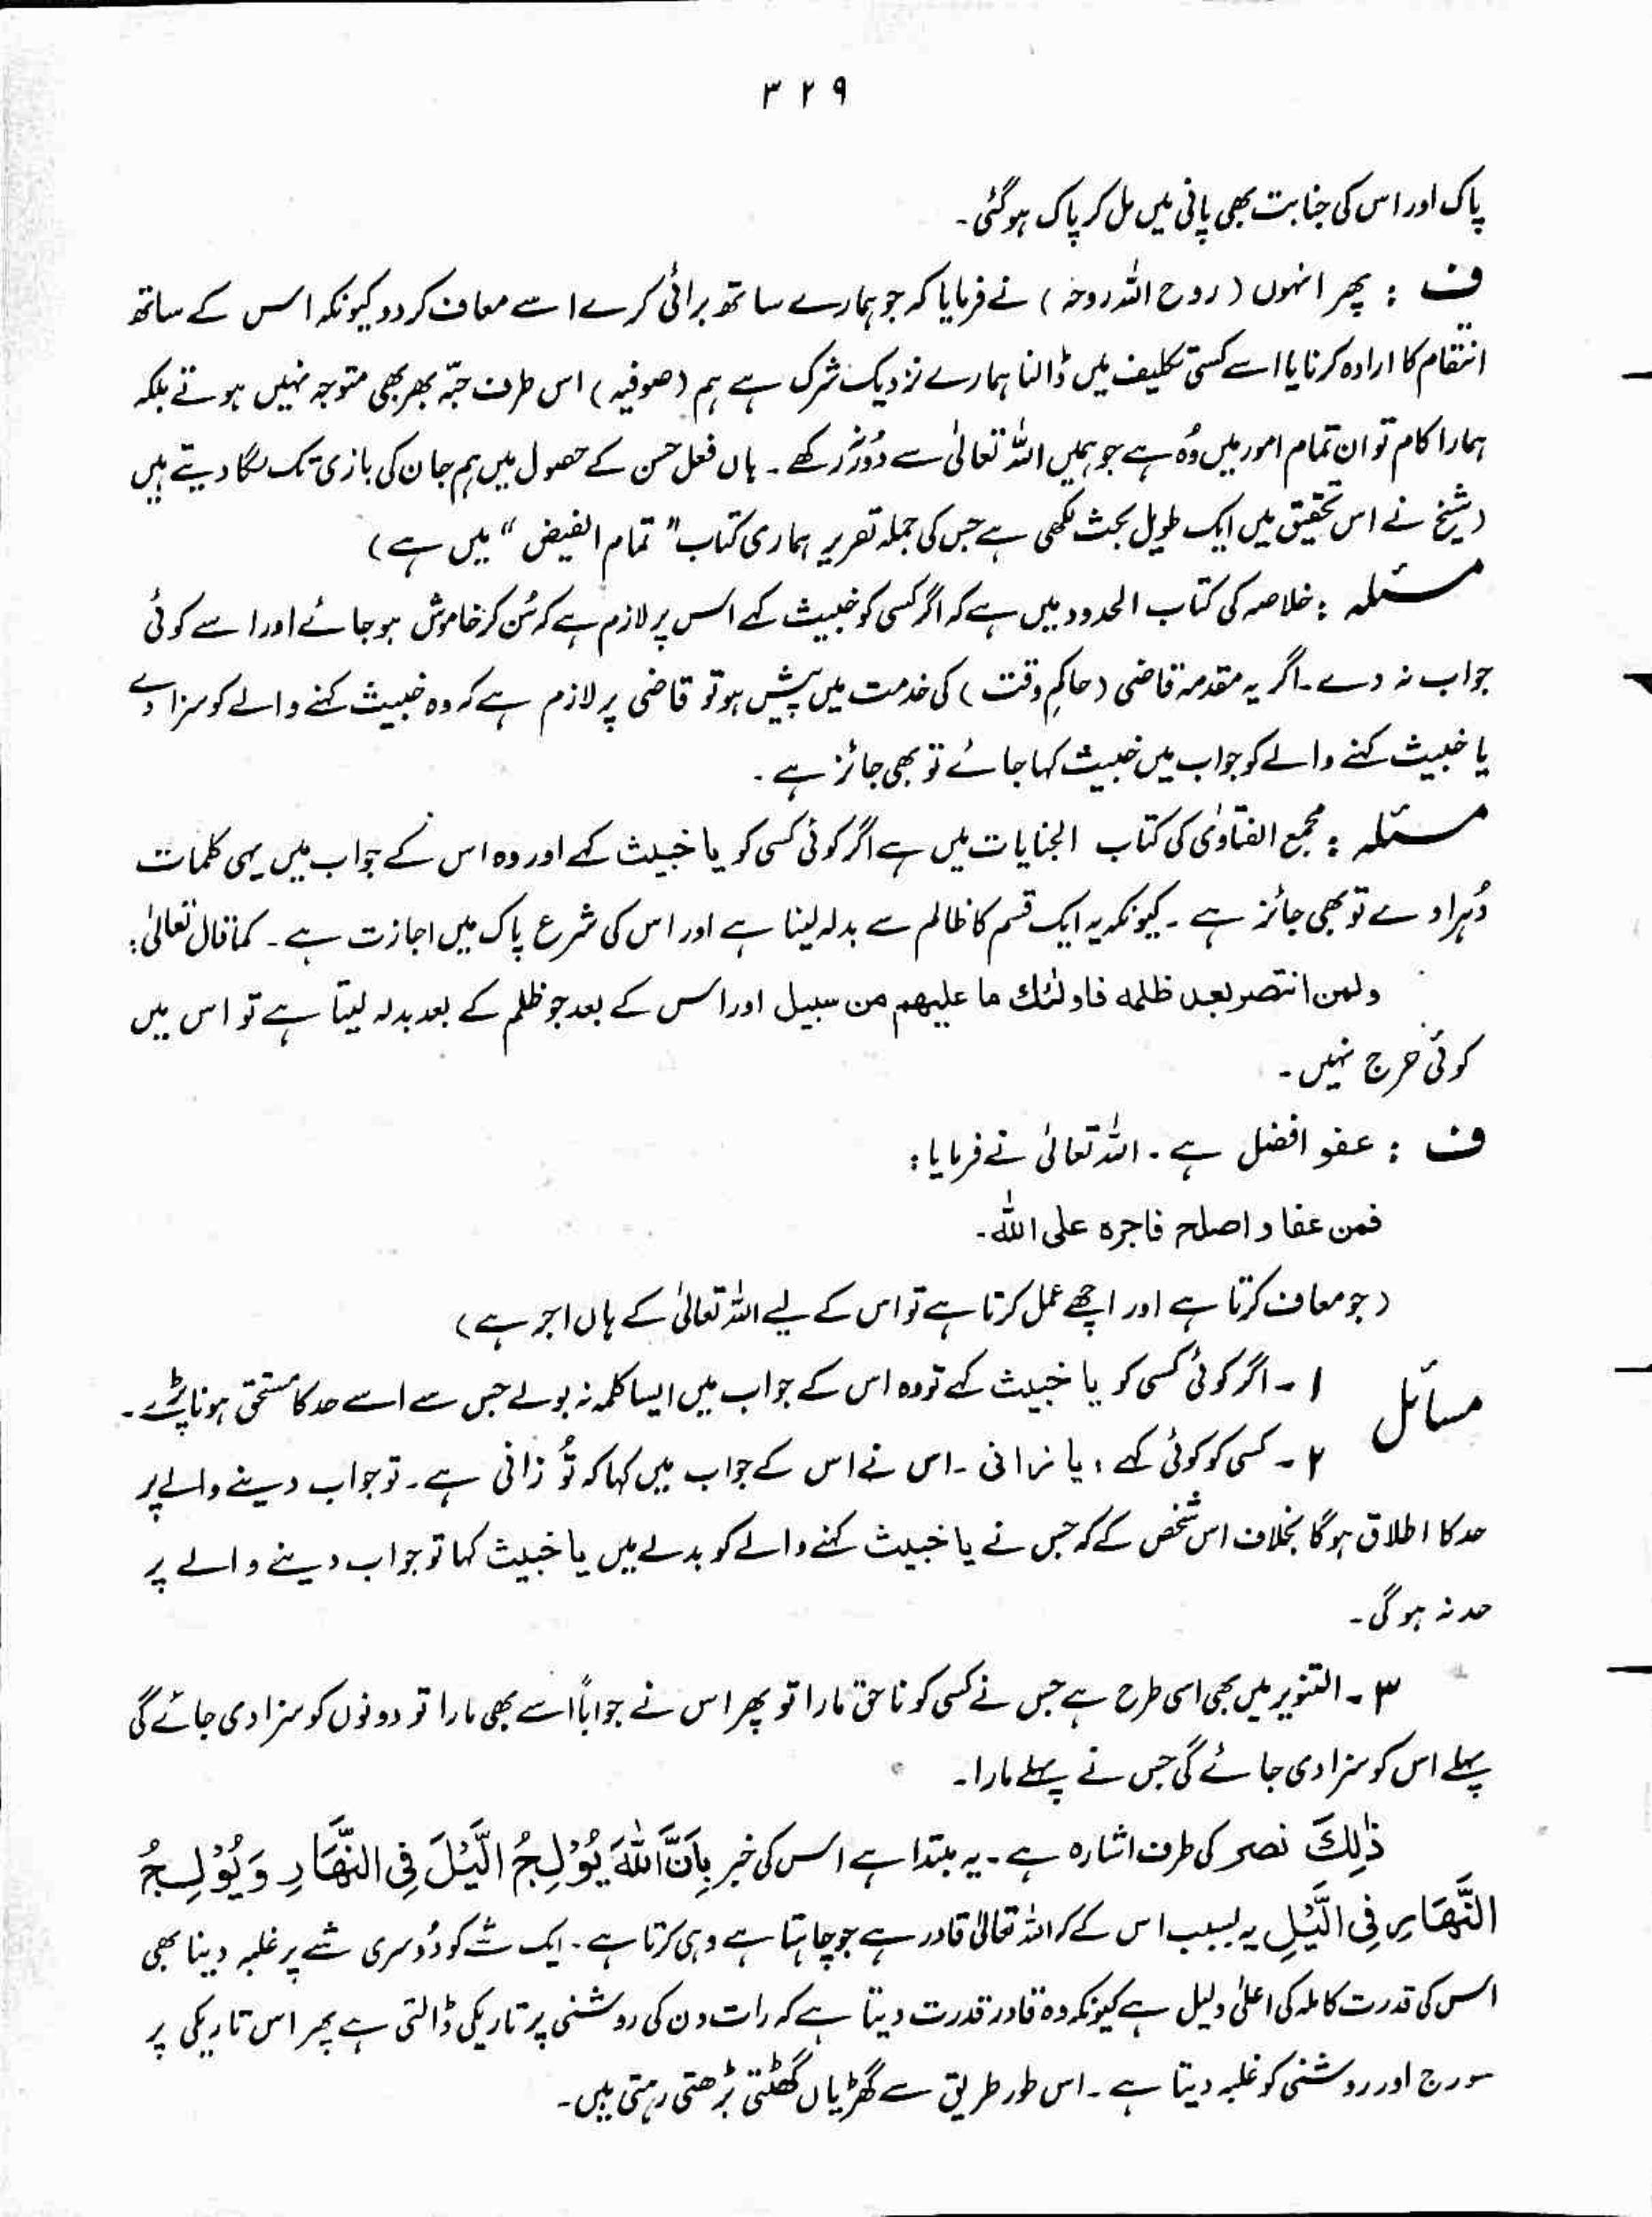 ۳۲۹
پاک اور اس کی جنابت بھی پانی میں مل کر پاک ہوگئی۔
ف : پھر انہوں (روح اللہ روحہ) نے فرمایا کہ جو ہمارے ساتھ برائی کرے اسے معاف کر دو کیونکہ اس کے ساتھ
انتقام کا ارادہ کرنا یا اسے کسی تکلیف میں ڈالنا ہمارے نزدیک شرک ہے ہم (صوفیہ) اس طرف حبّہ بھر بھی متوجہ نہیں ہوتے بلکہ
ہمارا کام تو ان تمام امور میں وُہ ہے جو ہمیں اللہ تعالیٰ سے دُور نہ رکھے۔ ہاں فعل حسن کے حصول میں ہم جان کی بازی تک لگا دیتے ہیں
(شیخ نے اس تحقیق میں ایک طویل بحث لکھی ہے جس کی جملہ تقریر ہماری کتاب "تمام الفیض" میں ہے)
مسئلہ : خلاصہ کی کتاب الحدود میں ہے کہ اگر کسی کو خبیث کہے اس پر لازم ہے کہ سُن کر خاموش ہو جائے اور اسے کوئی
جواب نہ دے۔ اگر یہ مقدمہ قاضی (حاکمِ وقت) کی خدمت میں پیش ہو تو قاضی پر لازم ہے کہ وہ خبیث کہنے والے کو سزا دے
یا خبیث کہنے والے کو جواب میں خبیث کہا جائے تو بھی جائز ہے۔
مسئلہ : مجمع الفتاوٰی کی کتاب الجنایات میں ہے اگر کوئی کسی کو یا خبیث کہے اور وہ اس کے جواب میں یہی کلمات
دُہرا دے تو بھی جائز ہے۔ کیونکہ یہ ایک قسم کا ظالم سے بدلہ لینا ہے اور اس کی شرع پاک میں اجازت ہے۔ کما قال تعالیٰ:
ولمن انتصر بعد ظلمه فاولئك ما علیهم من سبیل اور اس کے بعد جو ظلم کے بعد بدلہ لیتا ہے تو اس میں
کوئی حرج نہیں۔
ف : عفو افضل ہے۔ اللہ تعالیٰ نے فرمایا:
فمن عفا و اصلح فاجره علی اللہ۔
(جو معاف کرتا ہے اور اچھے عمل کرتا ہے تو اس کے لیے اللہ تعالیٰ کے ہاں اجر ہے)
مسائل ۱۔ اگر کوئی کسی کو یا خبیث کہے تو وہ اس کے جواب میں ایسا کلمہ نہ بولے جس سے اسے حد کا مستحق ہونا پڑے۔
۲۔ کسی کو کوئی کہے، یا زانی۔ اس نے اس کے جواب میں کہا کہ تُو زانی ہے۔ تو جواب دینے والے پر
حد کا اطلاق ہو گا بخلاف اس شخص کے کہ جس نے یا خبیث کہنے والے کو بدلے میں یا خبیث کہا تو جواب دینے والے پر
حد نہ ہوگی۔
۳۔ التنویر میں بھی اسی طرح ہے جس نے کسی کو ناحق مارا تو پھر اس نے جواباً اسے بھی مارا تو دونوں کو سزا دی جائے گی
پہلے اس کو سزا دی جائے گی جس نے پہلے مارا۔
ذٰلِكَ نصر کی طرف اشارہ ہے۔ یہ مبتدا ہے اس کی خبر بِاَنَّ اللّٰهَ يُوْلِجُ الَّيْلَ فِى النَّهَارِ وَيُوْلِجُ
النَّهَارَ فِى الَّيْلِ یہ بسبب اس کے کہ اللہ تعالیٰ قادر ہے جو چاہتا ہے وہی کرتا ہے۔ ایک شے کو دُوسری شے پر غلبہ دینا بھی
اس کی قدرت کاملہ کی اعلیٰ دلیل ہے کیونکہ وہ قادر قدرت دیتا ہے کہ رات دن کی روشنی پر تاریکی ڈالتی ہے پھر اس تاریکی پر
سورج اور روشنی کو غلبہ دیتا ہے۔ اس طور طریق سے گھڑیاں گھٹتی بڑھتی رہتی ہیں۔